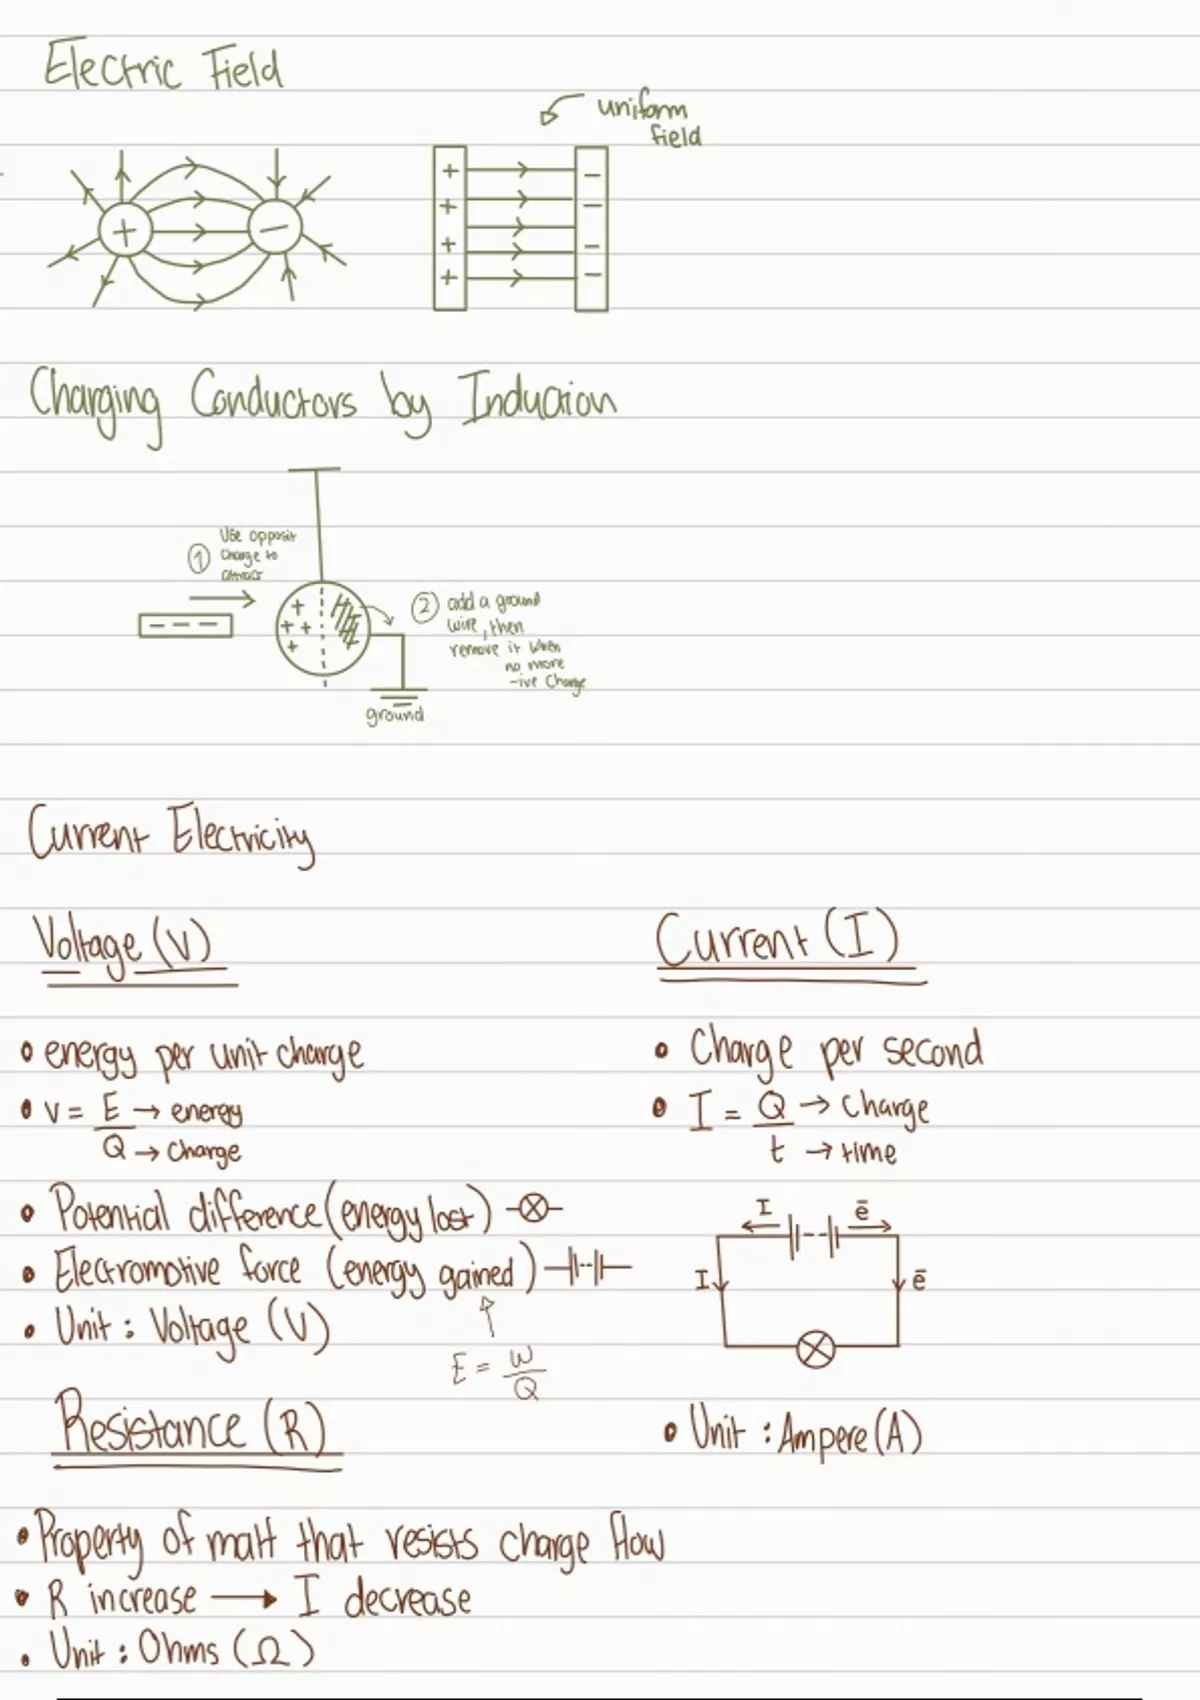 Electric Field
uniform
field
+ −
+ −
+
+ −
+ −
+ −
Charging Conductors by Induction
① Use opposit
charge to
attract
− − −
+
+ +
+
② add a ground
wire, then
remove it when
no more
-ive Charge
ground
Current Electricity
Voltage (V)
• energy per unit charge
• V = E → energy
Q → charge
• Potential difference (energy lost)
• Electromotive force (energy gained)
• Unit : Voltage (V)
E = W
Q
Current (I)
• Charge per second
• I = Q → Charge
t → time
I ē
I ē
• Unit : Ampere (A)
Resistance (R)
• Property of matt that resists charge flow
• R increase → I decrease
• Unit : Ohms (Ω)